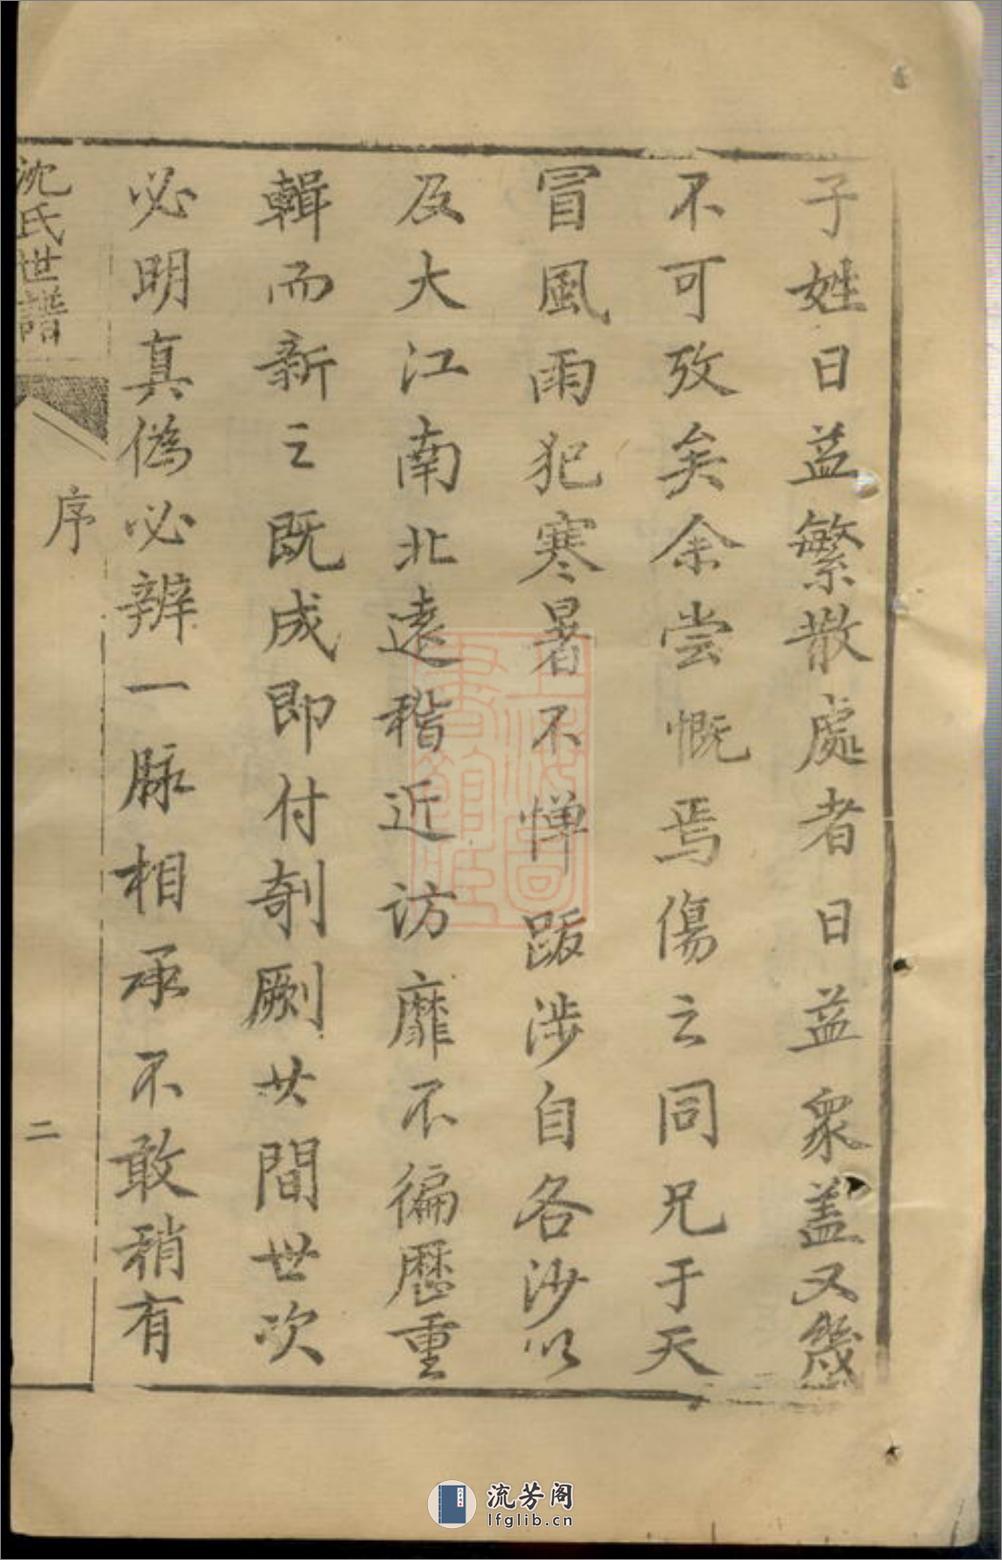 子姓日益繁散處者日益衆盖又幾
不可攷矣余尝慨焉傷之同兄于天
冒風雨犯寒暑不憚跋涉自各沙以
及大江南北遠稽近访靡不徧歷重
輯而新之既成即付剞劂其間世次
必明真偽必辨一脉相承不敢稍有
沈氏世譜
序
二
流芳阁
lfglib.cn